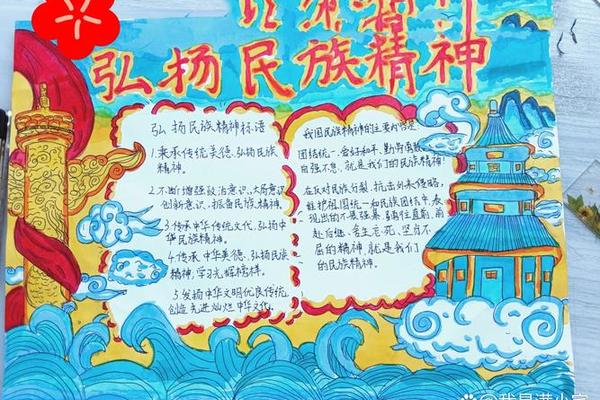 弘扬民族精神
弘扬民族精神标语
1.秉承传统美德、弘扬民族
精神。
2.不断增强政治意识、大局意识
创新意识、振奋民族、精神。
3.传承中华传统文化、弘扬中
华民族精神。
4.传承中华美德、弘扬民族
精神、学习光辉榜样。
5.发扬中华文明优良传统,
创造先进灿烂中华文化。
我国民族精神的主要内容是
团结统一、爱好和平、勤劳勇敢、
自强不息、就是我们的民族精神!
在反对民族分裂、抗击外来侵略,
维护祖国统一和民族团结中、表
现出的不畏强暴、勇往直前、前
赴后继、舍生忘死、坚贞不
屈的精神、就是我们
的民族精神。